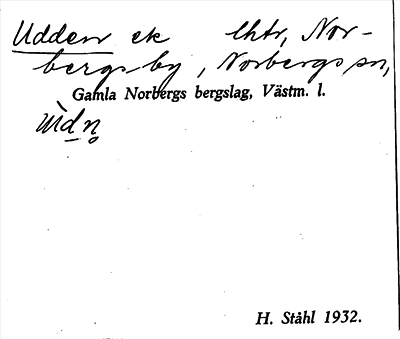 Udden ek lhtr, Nor-
bergsby, Norbergs sn,
Gamla Norbergs bergslag, Västm. l.
ùdn̥
H. Ståhl 1932.